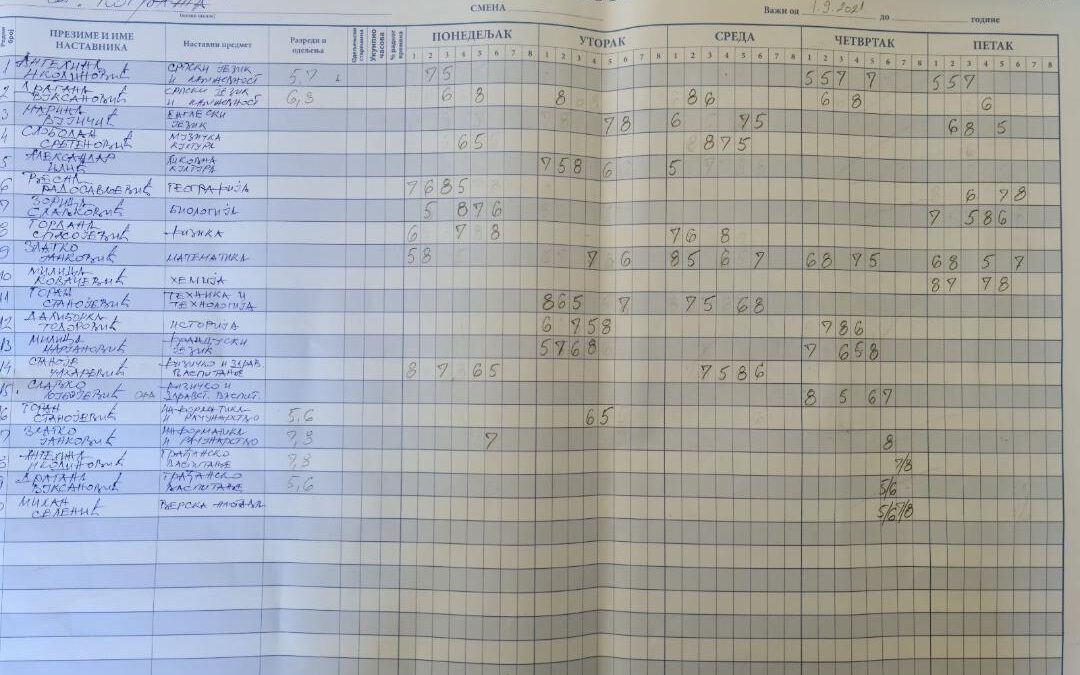 СМЕНА
Важи од 1.9.2021 до године
ПРЕЗИМЕ И ИМЕ НАСТАВНИКА
Наставни предмет
Разреди и одељења
Укупно часова
ПОНЕДЕЉАК
УТОРАК
СРЕДА
ЧЕТВРТАК
ПЕТАК
1 2 3 4 5 6 7 8 1 2 3 4 5 6 7 8 1 2 3 4 5 6 7 8 1 2 3 4 5 6 7 8 1 2 3 4 5 6 7 8
1 СРПСКИ ЈЕЗИК 5 7 7 5 5 5 7 7 5 5 7
НИКОЛИНОВИЋ И КЊИЖЕВНОСТ
2 ДРАГАНА СРПСКИ ЈЕЗИК 6,8 6 8 8 8 6 6 8 6
ВУКСАНОВИЋ И КЊИЖЕВНОСТ
3 МАРИНА ЕНГЛЕСКИ 7 8 6 7 5 6 8 5
ВУЈИЧИЋ ЈЕЗИК
4 СЛОБОДАН МУЗИЧКА 6 5 8 7 5
СРЕТЕНОВИЋ КУЛТУРА
5 АЛЕКСАНДАР ЛИКОВНА 7 5 8 6 5
ИЛИЋ КУЛТУРА
6 ВЕСНА ГЕОГРАФИЈА 7 6 8 5 6 7 8
РАДОСАВЉЕВИЋ
7 ЗОРИЦА БИОЛОГИЈА 5 8 7 6 7 5 8 6
СЛАВКОВИЋ
8 ГОРДАНА ФИЗИКА 6 7 8 7 6 8
СПАСОЈЕВИЋ
9 ЗЛАТКО МАТЕМАТИКА 5 8 7 6 8 5 6 7 6 8 7 5 6 8 5 7
ЈАНКОВИЋ
10 МИЛИЦА ХЕМИЈА 8 7 7 8
КОВАЧЕВИЋ
11 ГОРАН ТЕХНИКА И 8 6 5 7 7 5 6 8
СТАНОЈЕВИЋ ТЕХНОЛОГИЈА
12 ДАЛИБОРКА ИСТОРИЈА 6 7 5 8 7 8 6
ТОДОРОВИЋ
13 МИЛИЦА ФРАНЦУСКИ 5 7 6 8 7 6 5 8
МАРЈАНОВИЋ ЈЕЗИК
14 СТАНОЈЕ ФИЗИЧКО И ЗДРАВ. 8 7 6 5 7 5 8 6
ВАСПИТАЊЕ
15 СЛАВКО ФИЗИЧКО И 8 5 6 7
ЗДРАВСТ. ВАСПИТ.
16 ГОРАН ИНФОРМАТИКА 5,6 6 5
СТАНОЈЕВИЋ И РАЧУНАРСТВО
17 ЗЛАТКО ИНФОРМАТИКА 7,8 7 8
ЈАНКОВИЋ И РАЧУНАРСТВО
ГРАЂАНСКО 7,8 7/8
НИКОЛИНОВИЋ ВАСПИТАЊЕ
ДРАГАНА ГРАЂАНСКО 5,6 5/6
ВУКСАНОВИЋ ВАСПИТАЊЕ
МИЛАН ВЕРСКА НАСТАВА 5/6 7/8
СЕЛЕНИЋ